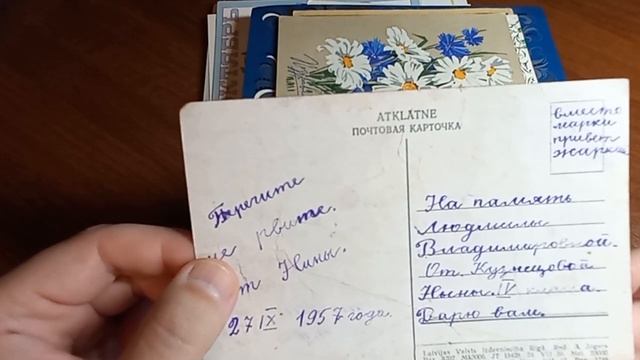 АБРЬ
ATKLĀTNE
ПОЧТОВАЯ КАРТОЧКА
вместо
марки
привет
жаркий
Берегите
не рвите.
от Нины.
27 IX 1957 года.
На память
Людмилы
Владимировной.
От Кузнецовой
Нины. IV класса.
Дарю вам.
Latvijas Valsts izdevniecība Rīgā